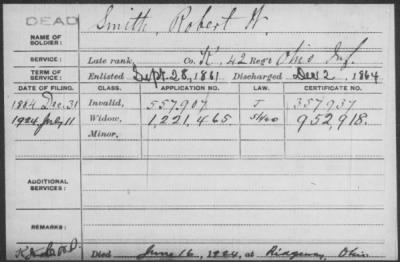 DEAD
Smith, Robert W.
NAME OF SOLDIER:
SERVICE: Late rank, Co. K, 42 Reg't Ohio Inf.
TERM OF SERVICE: Enlisted Sept. 28, 1861 Discharged Dec 2, 1864
DATE OF FILING. CLASS. APPLICATION NO. LAW. CERTIFICATE NO.
1884 Dec. 31 Invalid, 557,907 J 357,937
1924 July 11 Widow, 1,221,465. 952,918.
Minor,
ADDITIONAL SERVICES:
REMARKS:
Died June 16, 1924, at Ridgeway, Ohio